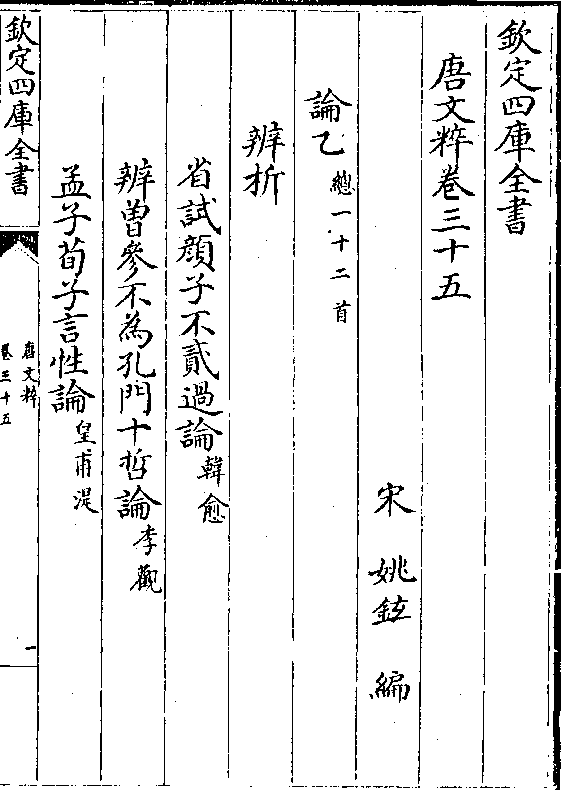 欽定四庫全書
唐文粹卷三十五
宋 姚鉉 編
論乙 總一十二首
辨析
省試顔子不貳過論 韓愈
辨曽參不為孔門十哲論 李觀
孟子荀子言性論 皇甫湜
欽定四庫全書
唐文粹
卷三十五
一